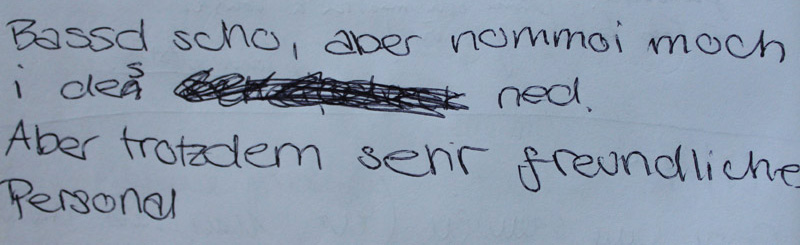 Bassd scho, aber nommoi moch
i des ned.
Aber trotzdem sehr freundliche
Personal